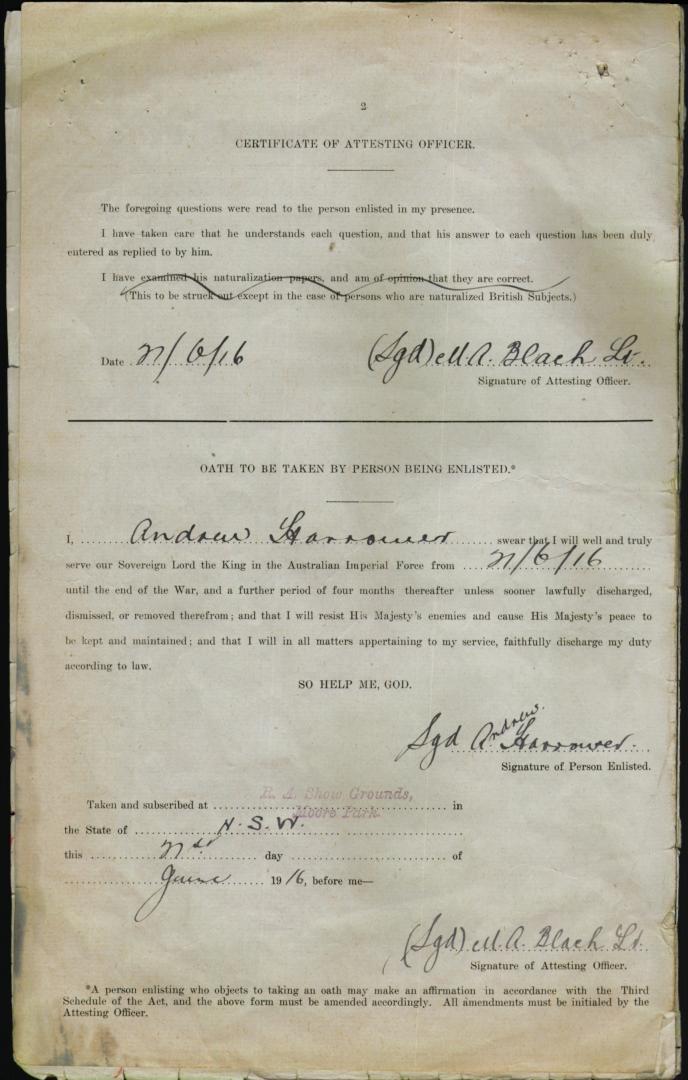 2
CERTIFICATE OF ATTESTING OFFICER.
The foregoing questions were read to the person enlisted in my presence.
I have taken care that he understands each question, and that his answer to each question has been duly
entered as replied to by him.
I have examined his naturalization papers, and am of opinion that they are correct.
(This to be struck out except in the case of persons who are naturalized British Subjects.)
Date 21/6/16 (Sgd) M A. Black Lt.
Signature of Attesting Officer.
OATH TO BE TAKEN BY PERSON BEING ENLISTED.*
I, Andrew Harrower swear that I will well and truly
serve our Sovereign Lord the King in the Australian Imperial Force from 21/6/16
until the end of the War, and a further period of four months thereafter unless sooner lawfully discharged,
dismissed, or removed therefrom; and that I will resist His Majesty's enemies and cause His Majesty's peace to
be kept and maintained; and that I will in all matters appertaining to my service, faithfully discharge my duty
according to law.
SO HELP ME, GOD.
Sgd Andrew Harrower.
Signature of Person Enlisted.
R. A. Show Grounds,
Taken and subscribed at Moore Park. in
the State of N. S. W.
this 21st day of
June 1916, before me—
(Sgd) M. A. Black Lt.
Signature of Attesting Officer.
*A person enlisting who objects to taking an oath may make an affirmation in accordance with the Third
Schedule of the Act, and the above form must be amended accordingly. All amendments must be initialed by the
Attesting Officer.